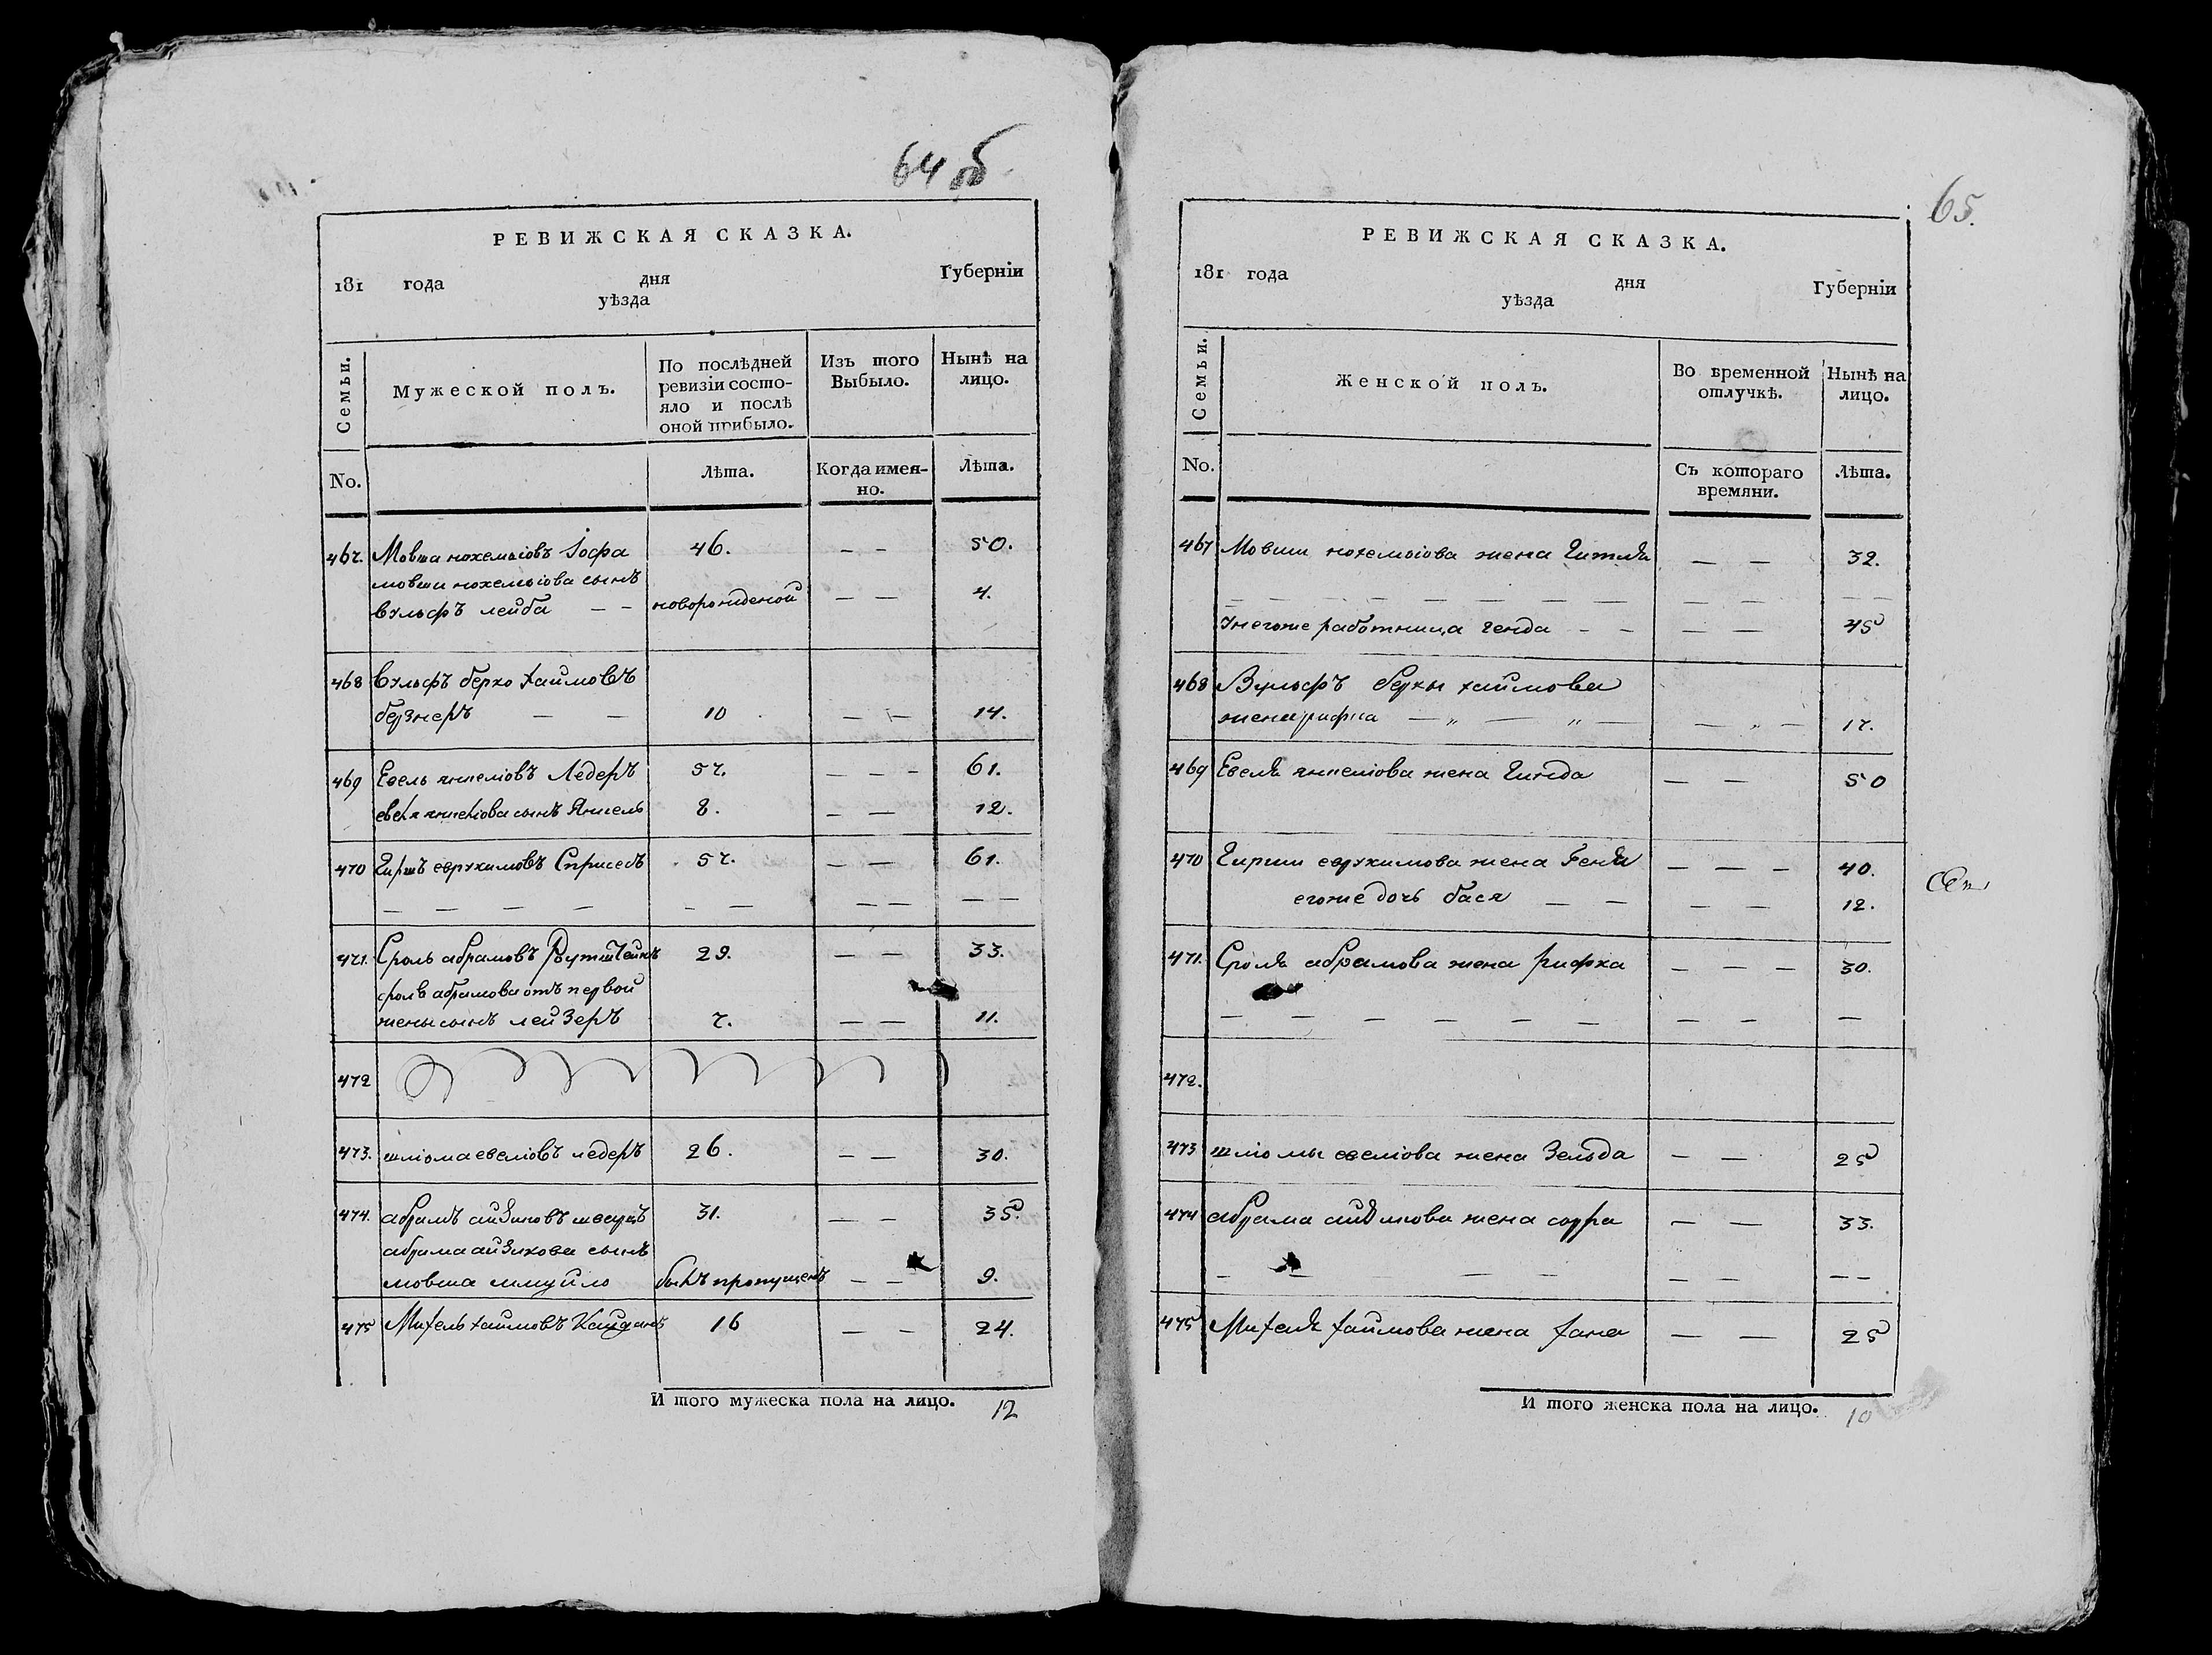 64 об
РЕВИЖСКАЯ СКАЗКА.
181 года дня Губерніи
уѣзда
Семьи.
Мужеской полъ.
По послѣдней ревизіи состояло и послѣ оной прибыло.
Изъ того Выбыло.
Нынѣ на лицо.
No.
Лѣта.
Когда именно.
Лѣта.
467. Мовша нохемьіовъ Іофа 46. — — 50.
мовши нохемьіова сынъ
вульфъ лейба — — новорожденой — — 4.
468 Вульфъ берко хаимовъ
берзнеръ — — 10 — — 14.
469 Евель янкеліовъ Ледеръ 57. — — — 61.
евеля янкеліова сынъ Янкель 8. — — 12.
470 Гиршъ еврухимовъ 57. — — 61.
— — — — — — — — — —
471. Сроль абрамовъ Рутштейнъ 29. — — 33.
сроля абрамова отъ первой
жены сынъ лейзеръ 7. — — 11.
472
473. шліома евеліовъ ледеръ 26. — — 30.
474. абрамъ айзиковъ шварцъ 31. — — 35.
абрама айзикова сынъ
мовша шмуйло былъ пропущенъ — — 9.
475 Михель хаимовъ 16 — — 24.
И того мужеска пола на лицо. 12
65.
РЕВИЖСКАЯ СКАЗКА.
181 года дня Губерніи
уѣзда
Семьи.
Женской полъ.
Во временной отлучкѣ.
Нынѣ на лицо.
No.
Съ котораго времяни.
Лѣта.
467 Мовши нохемьіова жена Гитля — — 32.
— — — — — — — — — — —
У негоже работница генда — — — — 45
468 Вульфъ берки хаимова
жена рифка — „ — „ — — „ — 17.
469 Евеля янкеліова жена Гинда — — 50
470 Гирши еврухимова жена Геня — — — 40.
егоже дочь бася — — — — 12.
471. Сроля абрамова жена рифка — — — 30.
— — — — — — — — —
472.
473 шліомы евеліова жена Зельда — — 25
474 абрама айзикова жена сорра — — 33.
— — — — — — — —
475 Михеля хаимова жена хана — — 25
И того женска пола на лицо. 10